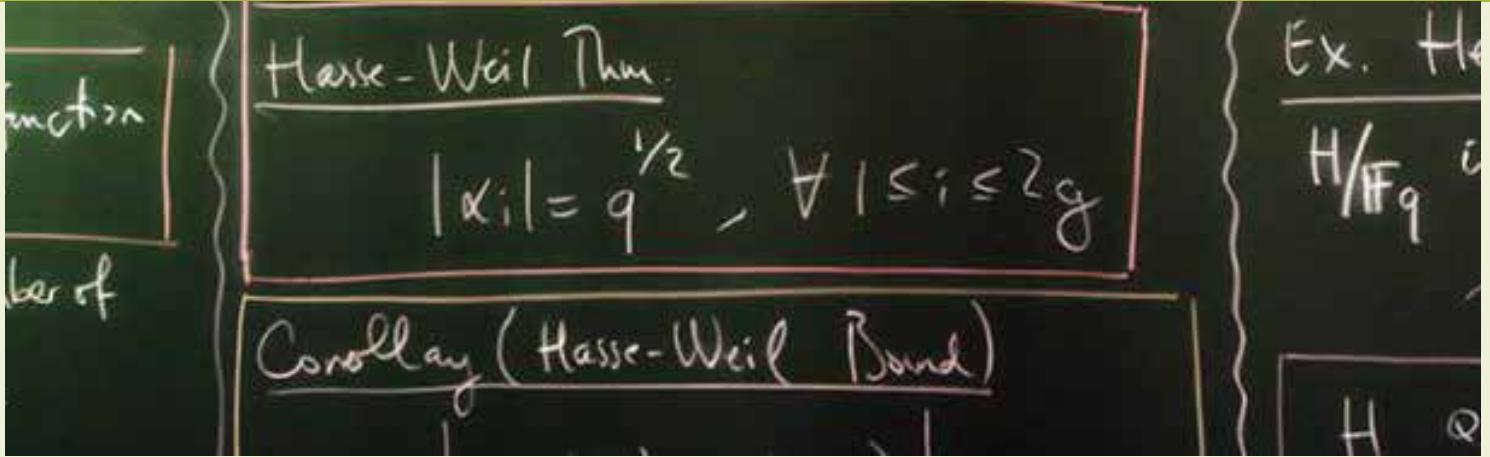 ber of
Hasse-Weil Thm.
|αi| = q^1/2, ∀ 1 ≤ i ≤ 2g
Corollay (Hasse-Weil Bound)
Ex.
H/𝔽q
H